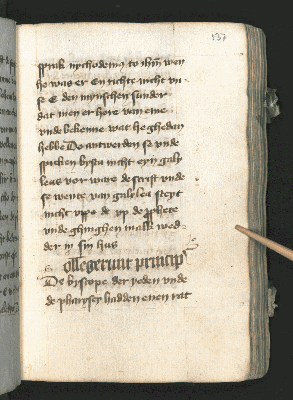 137
sprak nychodemus to ihm wen
he was er En richte nicht vn
se E den mynschen sunder
dat men er hore van eme
vnde bekenne wat he ghedan
hebbe De antwerden se vnde
spreken bystu nicht eyn galy
leus vor ware de scrift vnde
se wente van galilea steyt
nicht vppe de vp de prophete
vnde ghinghen malk wed
der in sin hus
Collegerunt princip
De byscope der ioden vnde
de pharysey hadden enen rat